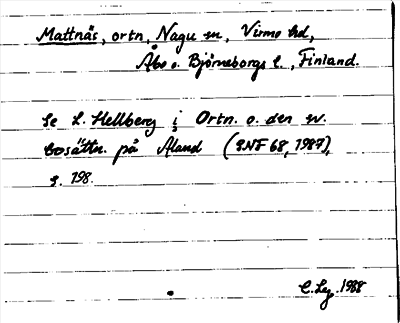 Mattnäs, ortn, Nagu sn, Virmo hd,
Åbo o. Björneborgs l., Finland.
Se L. Hellberg i Ortn. o. den sv.
bosättn. på Åland (SNF 68, 1987),
s. 198.
C. Lej. 1988